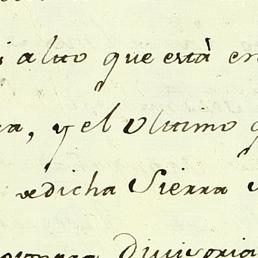 alto que está en
a, y el Ultimo q
dicha Sierra
Divisoria